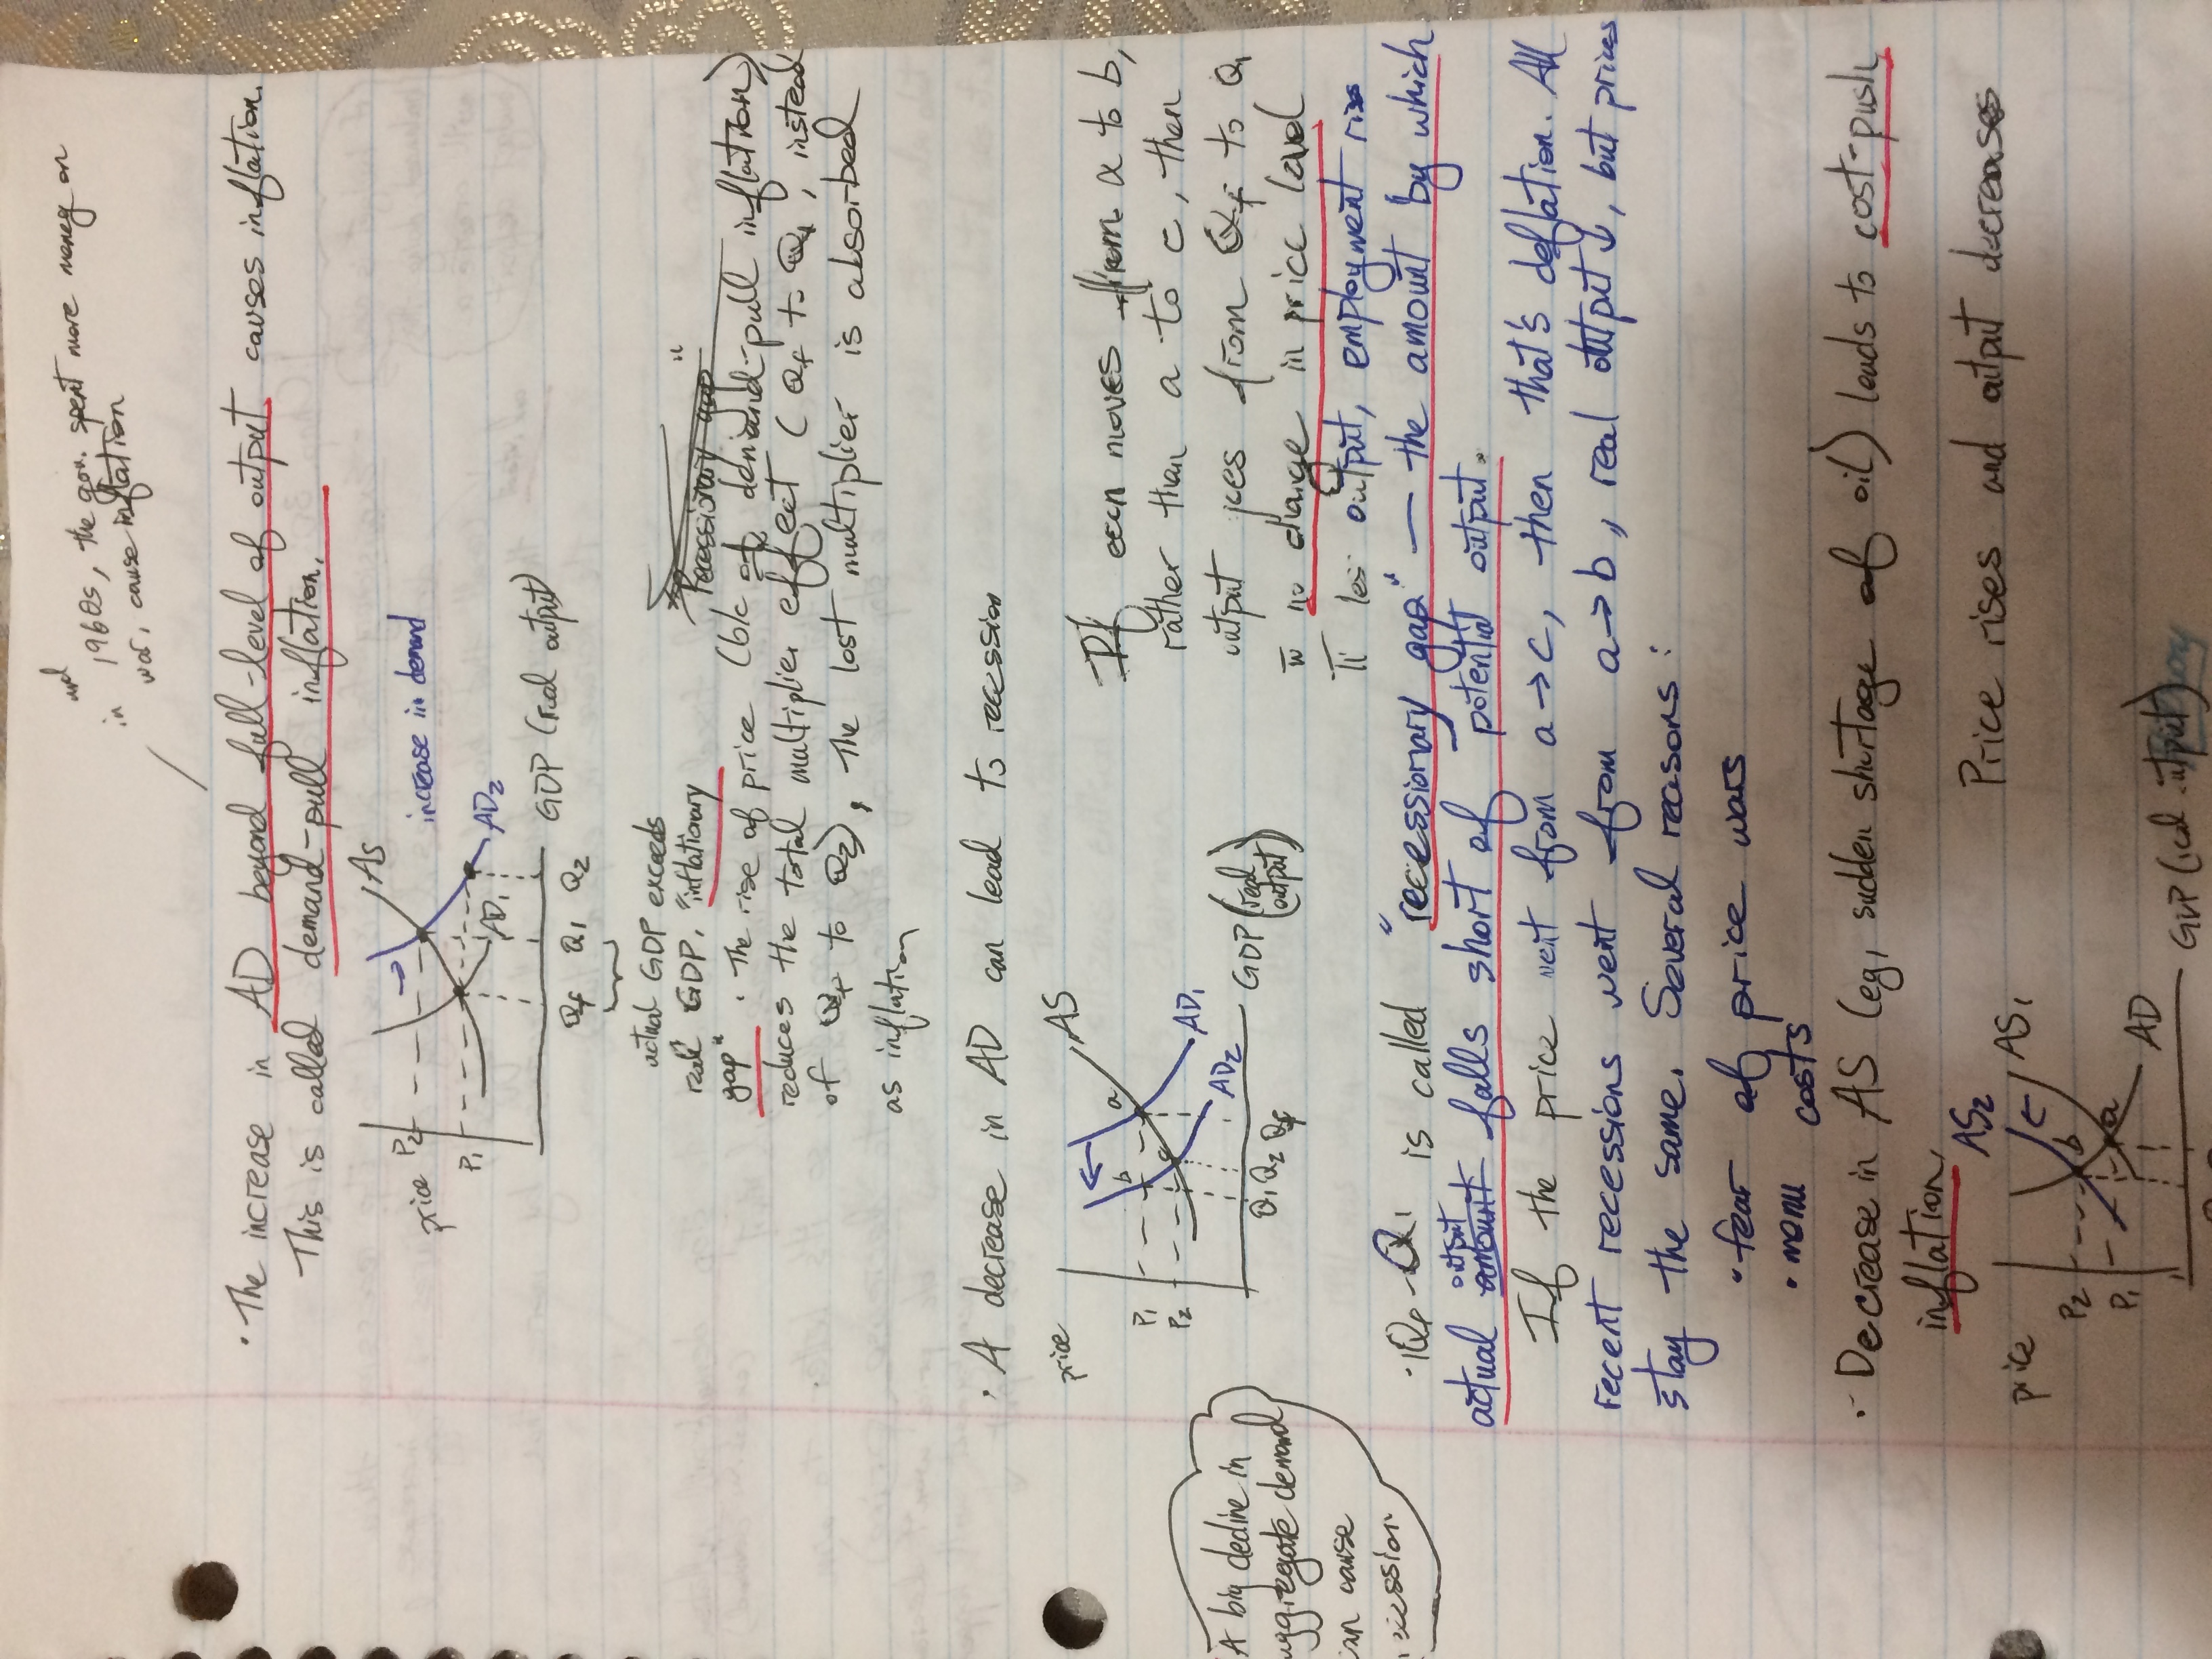 and
in 1960s, the gov. spent more money on
war, cause inflation
· The increase in AD beyond full-level of output causes inflation.
This is called demand-pull inflation.
AS
P2
price
increase in demand
P1
AD1
AD2
GDP (real output)
Qf Q1 Q2
actual GDP exceeds
real GDP, "inflationary
Recessionary gap"
gap". The rise of price (b/c of demand-pull inflation)
reduces the total multiplier effect (Qf to Q1, instead
of Qf to Q2), The lost multiplier is absorbed
as inflation
· A decrease in AD can lead to recession
price
AS
a
b
P1
c
P2
AD1
AD2
GDP (real output)
Q1 Q2 Qf
If econ moves from a to b,
rather than a to c, then
output goes from Qf to Q1
no change in price level
less output, employment rise
A big decline in
aggregate demand
can cause
recession
· Qf-Q1 is called "recessionary gap" — the amount by which
output
actual amount falls short of potential output.
If the price went from a→c, then that's deflation. All
recent recessions went from a→b, real output↓, but prices
stay the same. Several reasons:
· fear of price wars
· menu costs
· Decrease in AS (eg, sudden shortage of oil) leads to cost-push
inflation.
AS2
Price rises and output decreases
AS1
price
P2
b
P1
a
AD
GDP (real output)